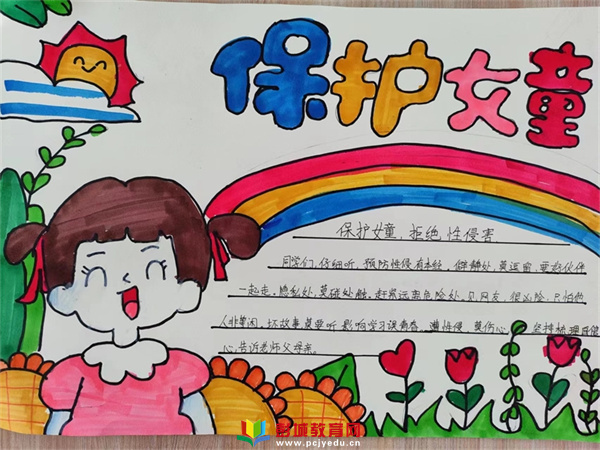 保护女童
保护女童,拒绝性侵害
同学们,仔细听,预防性侵有本经,僻静处,莫逗留,要趁伙伴
一起走.隐私处,莫碰处触,赶紧远离危险处,见网友,很凶险,只怕他
人非等闲,坏故事莫要听影响学习误青春,遭性侵,莫伤心,坚持梳理
心,告诉老师父母亲。
彭城教育网
www.pcjyedu.cn